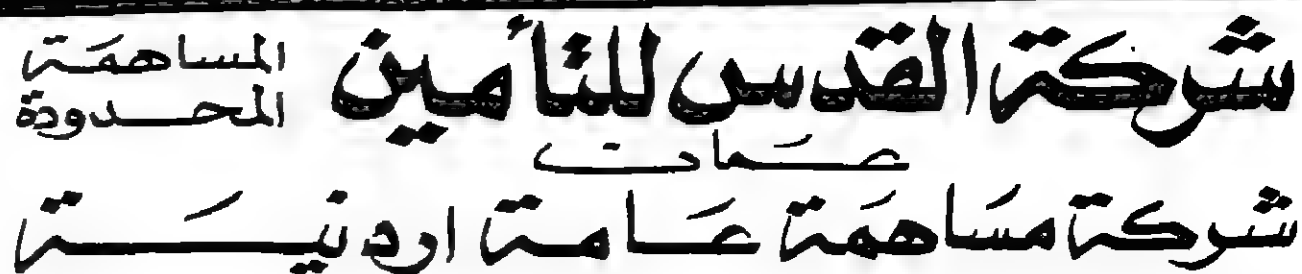 شركة القدس للتأمين المساهمة المحدودة
عمان
شركة مساهمة عامة اردنية